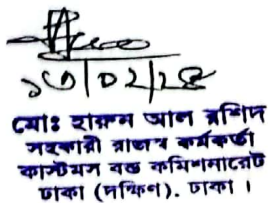 ১৩/০২/২৪
মোঃ হারুন আল রশিদ
সহকারী রাজস্ব কর্মকর্তা
কাস্টমস বন্ড কমিশনারেট
ঢাকা (দক্ষিণ). ঢাকা ।